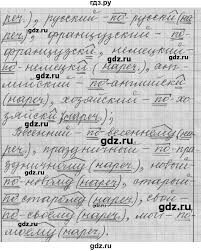 гдз.ру
реч.), русский - по-русски (на
реч.), французский - по-
французски, немецкий -
по-немецки (нареч.), ан-
глийский - по-английски
(нареч.), хозяйский - по-хо
зяйски (нареч.);
весенний - по-весеннему (на
реч.), праздничный - по-пра
здничному (нареч.), новый -
по-новому (нареч.), старый -
по-старому (нареч.), свой -
по-своему (нареч.), мой - по-
моему (нареч.).
gdz.ru